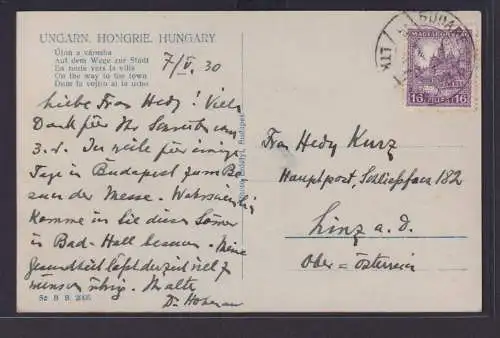 UNGARN. HONGRIE. HUNGARY
Útban a városba
Auf dem Wege zur Stadt
En route vers la ville
On the way to the town
7/V. 30
Liebe Frau Hedy! Viel
Dank für Ihr Schreiben vom
3. d. Ich weile für einige
Tage in Budapest zum Be
such der Messe. Wahrscheinlich
komme ich Sie diesen Sommer
in Bad-Hall besuchen. Meine
Gesundheit läßt derzeit viel z
wünschen übrig.
Dr
B. B. 2005
Budapest
BUDA
MAGYARORSZÁG
16 16
Frau Hedy Kurz
Hauptpost, Schließfach 182
Linz a. d.
Ober=Österreich